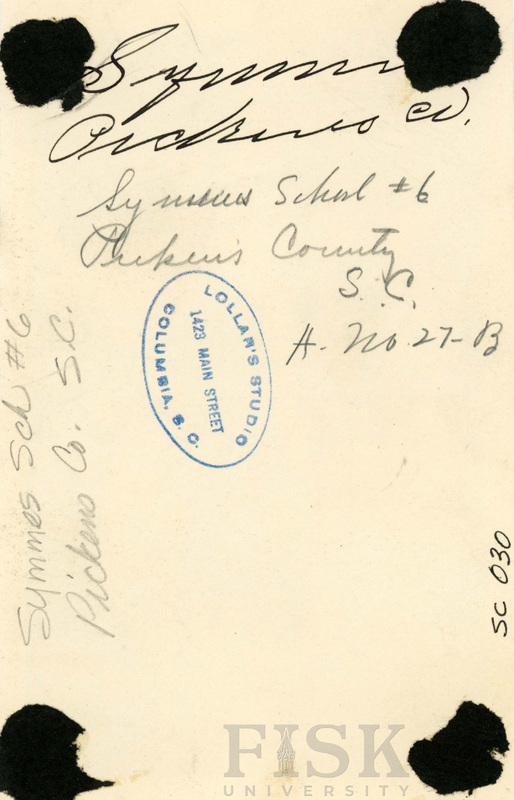 Pickens Co.
Symmes School #6
Pickens County
S.C.
A- No. 27-B
LOLLAR'S STUDIO
1423 MAIN STREET
COLUMBIA, S. C.
Symmes Sch #6
Pickens Co. S.C.
SC 030
FISK
UNIVERSITY